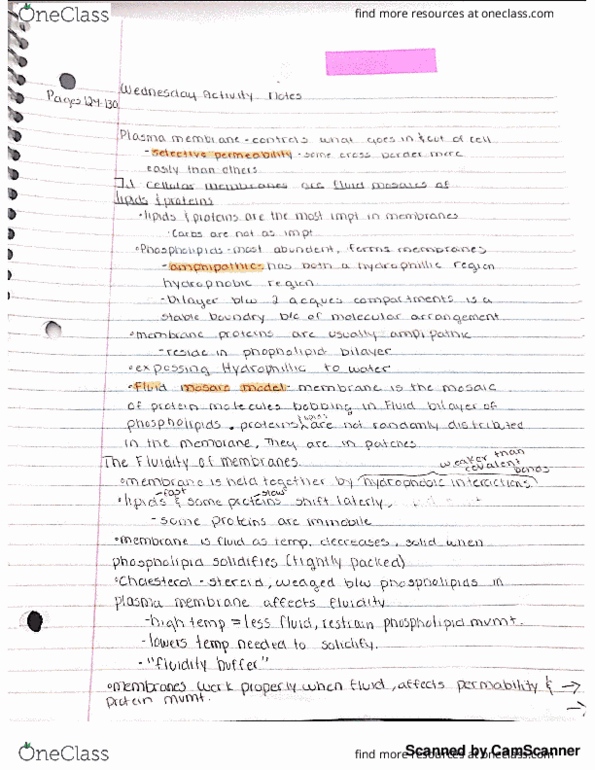 OneClass
find more resources at oneclass.com
Wednesday Activity Notes
Pages 124-130
Plasma membrane - controls what goes in & out of cell
- selective permeability - some cross border more
easily than others
7.1 cellular membranes are fluid mosaics of
lipids & proteins
• lipids & proteins are the most impt in membranes
Carbs are not as impt
• Phospholipids - most abundent, forms membranes
- amphipathic - has both a hydrophillic region
hydrophobic region
- bilayer b/w 2 acques compartments is a
stable boundry b/c of molecular arrangement
• membrane proteins are usually ampipathic
- reside in phopholipid bilayer
• expossing Hydrophillic to water
• Fluid mosaic model - membrane is the mosaic
of protein molecules bobbing in fluid bilayer of
phospholipids. proteins & lipids are not randomly distributed
in the membrane, They are in patches
The Fluidity of membranes.
weaker than
covalent bonds
• membrane is held together by hydrophobic interactions
- fast - slow
• lipids & some proteins shift laterly,
- some proteins are immobile
• membrane is fluid as temp. decreases, solid when
phospholipid solidifies (tightly packed)
• Cholesterol - steroid, wedged b/w phospholipids in
plasma membrane affects fluidity
- high temp = less fluid, restrain phospholipid mvmt.
- lowers temp needed to solidify.
- "fluidity buffer"
• membranes work properly when fluid, affects permability & →
protein mvmt. →
Scanned by CamScanner
OneClass
find more resources at oneclass.com